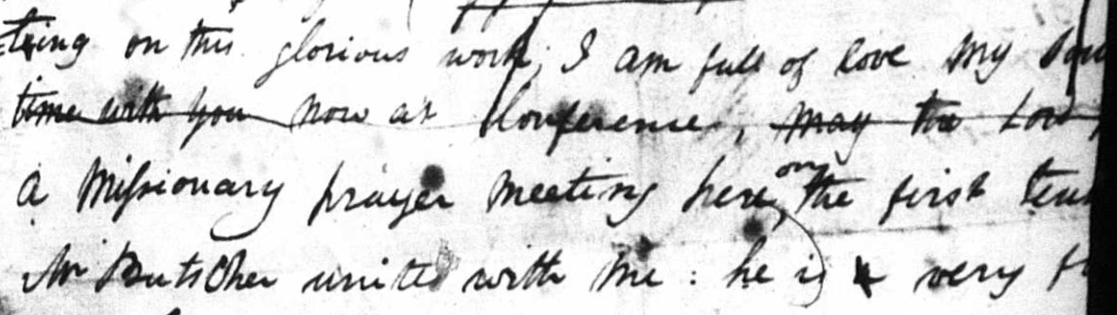 ting on this glorious work, I am full of love My Sou
time with you now at Conference, may the Lord
a Missionary prayer meeting here, on the first
Mr Butscher united with me : he is a very